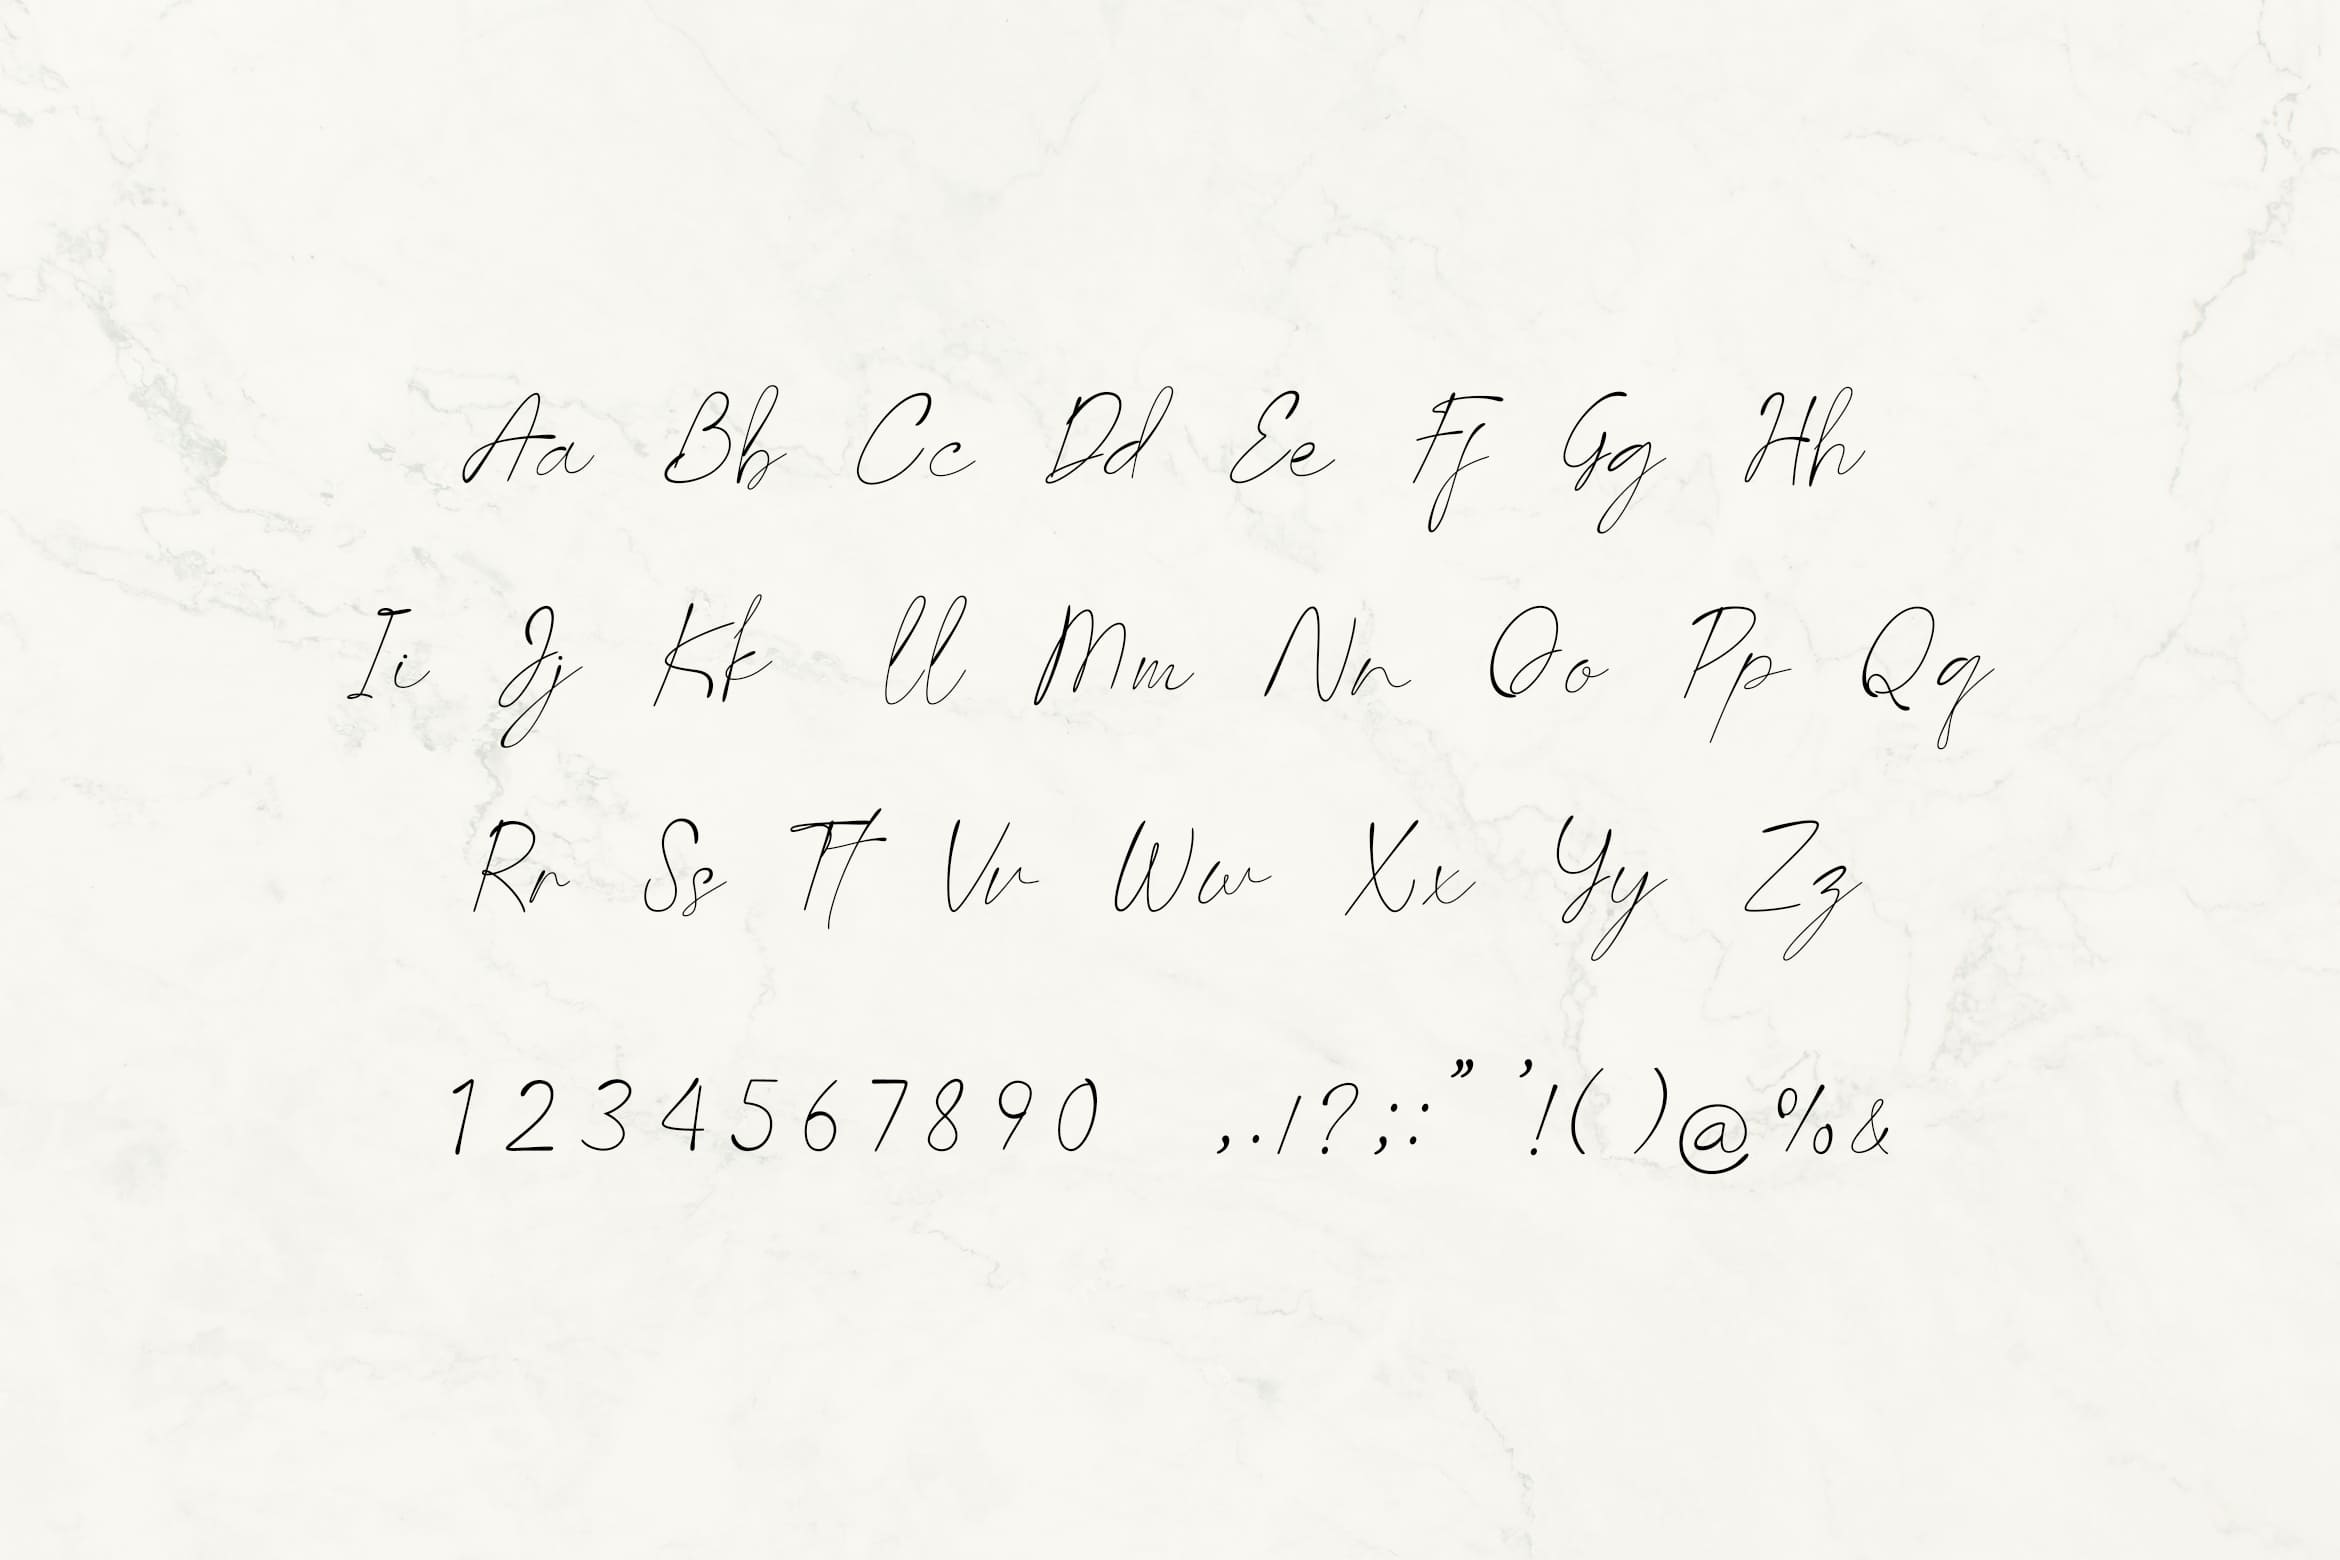 Aa Bb Cc Dd Ee Ff Gg Hh
Ii Jj Kk Ll Mm Nn Oo Pp Qq
Rr Ss Tt Vv Ww Xx Yy Zz
1 2 3 4 5 6 7 8 9 0 , . / ? ; : ” ’ ! ( ) @ % &